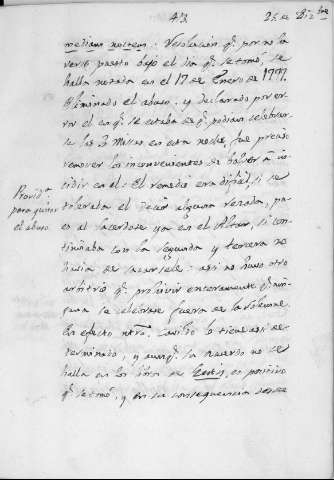 43
25 de Dizbre
mediam noctem: Resolucion q.e por no ha
verse puesto bajo el dia q.e se tomó, se
halla notada en el 17 de Enero de 1777.
Eliminado el abuso, y declarado por er
ror el en q.e se estaba de q.e podian celebrar
se las 3 Misas en esta noche, fue preciso
remover los inconvenientes de bolver á in
cidir en el: El remedio era dificil, si se
toleraba el decir alguna rezada, pues
al Sacerdote ya en el Altar, si con
tinuaba con la segunda y tercera no
havia de
: asi no huvo otro
arbitrio q.e prohivir enteramente q.e nin
guna se celebrase fuera de la solemne
En efecto ntro. Cavildo lo tiene asi de
terminado; y aunq.e el acuerdo no se
halla en los libros de Gestis, es positivo
q.e se tomó, y en su consequencia desde
Provid.a
para quitar
el abuso